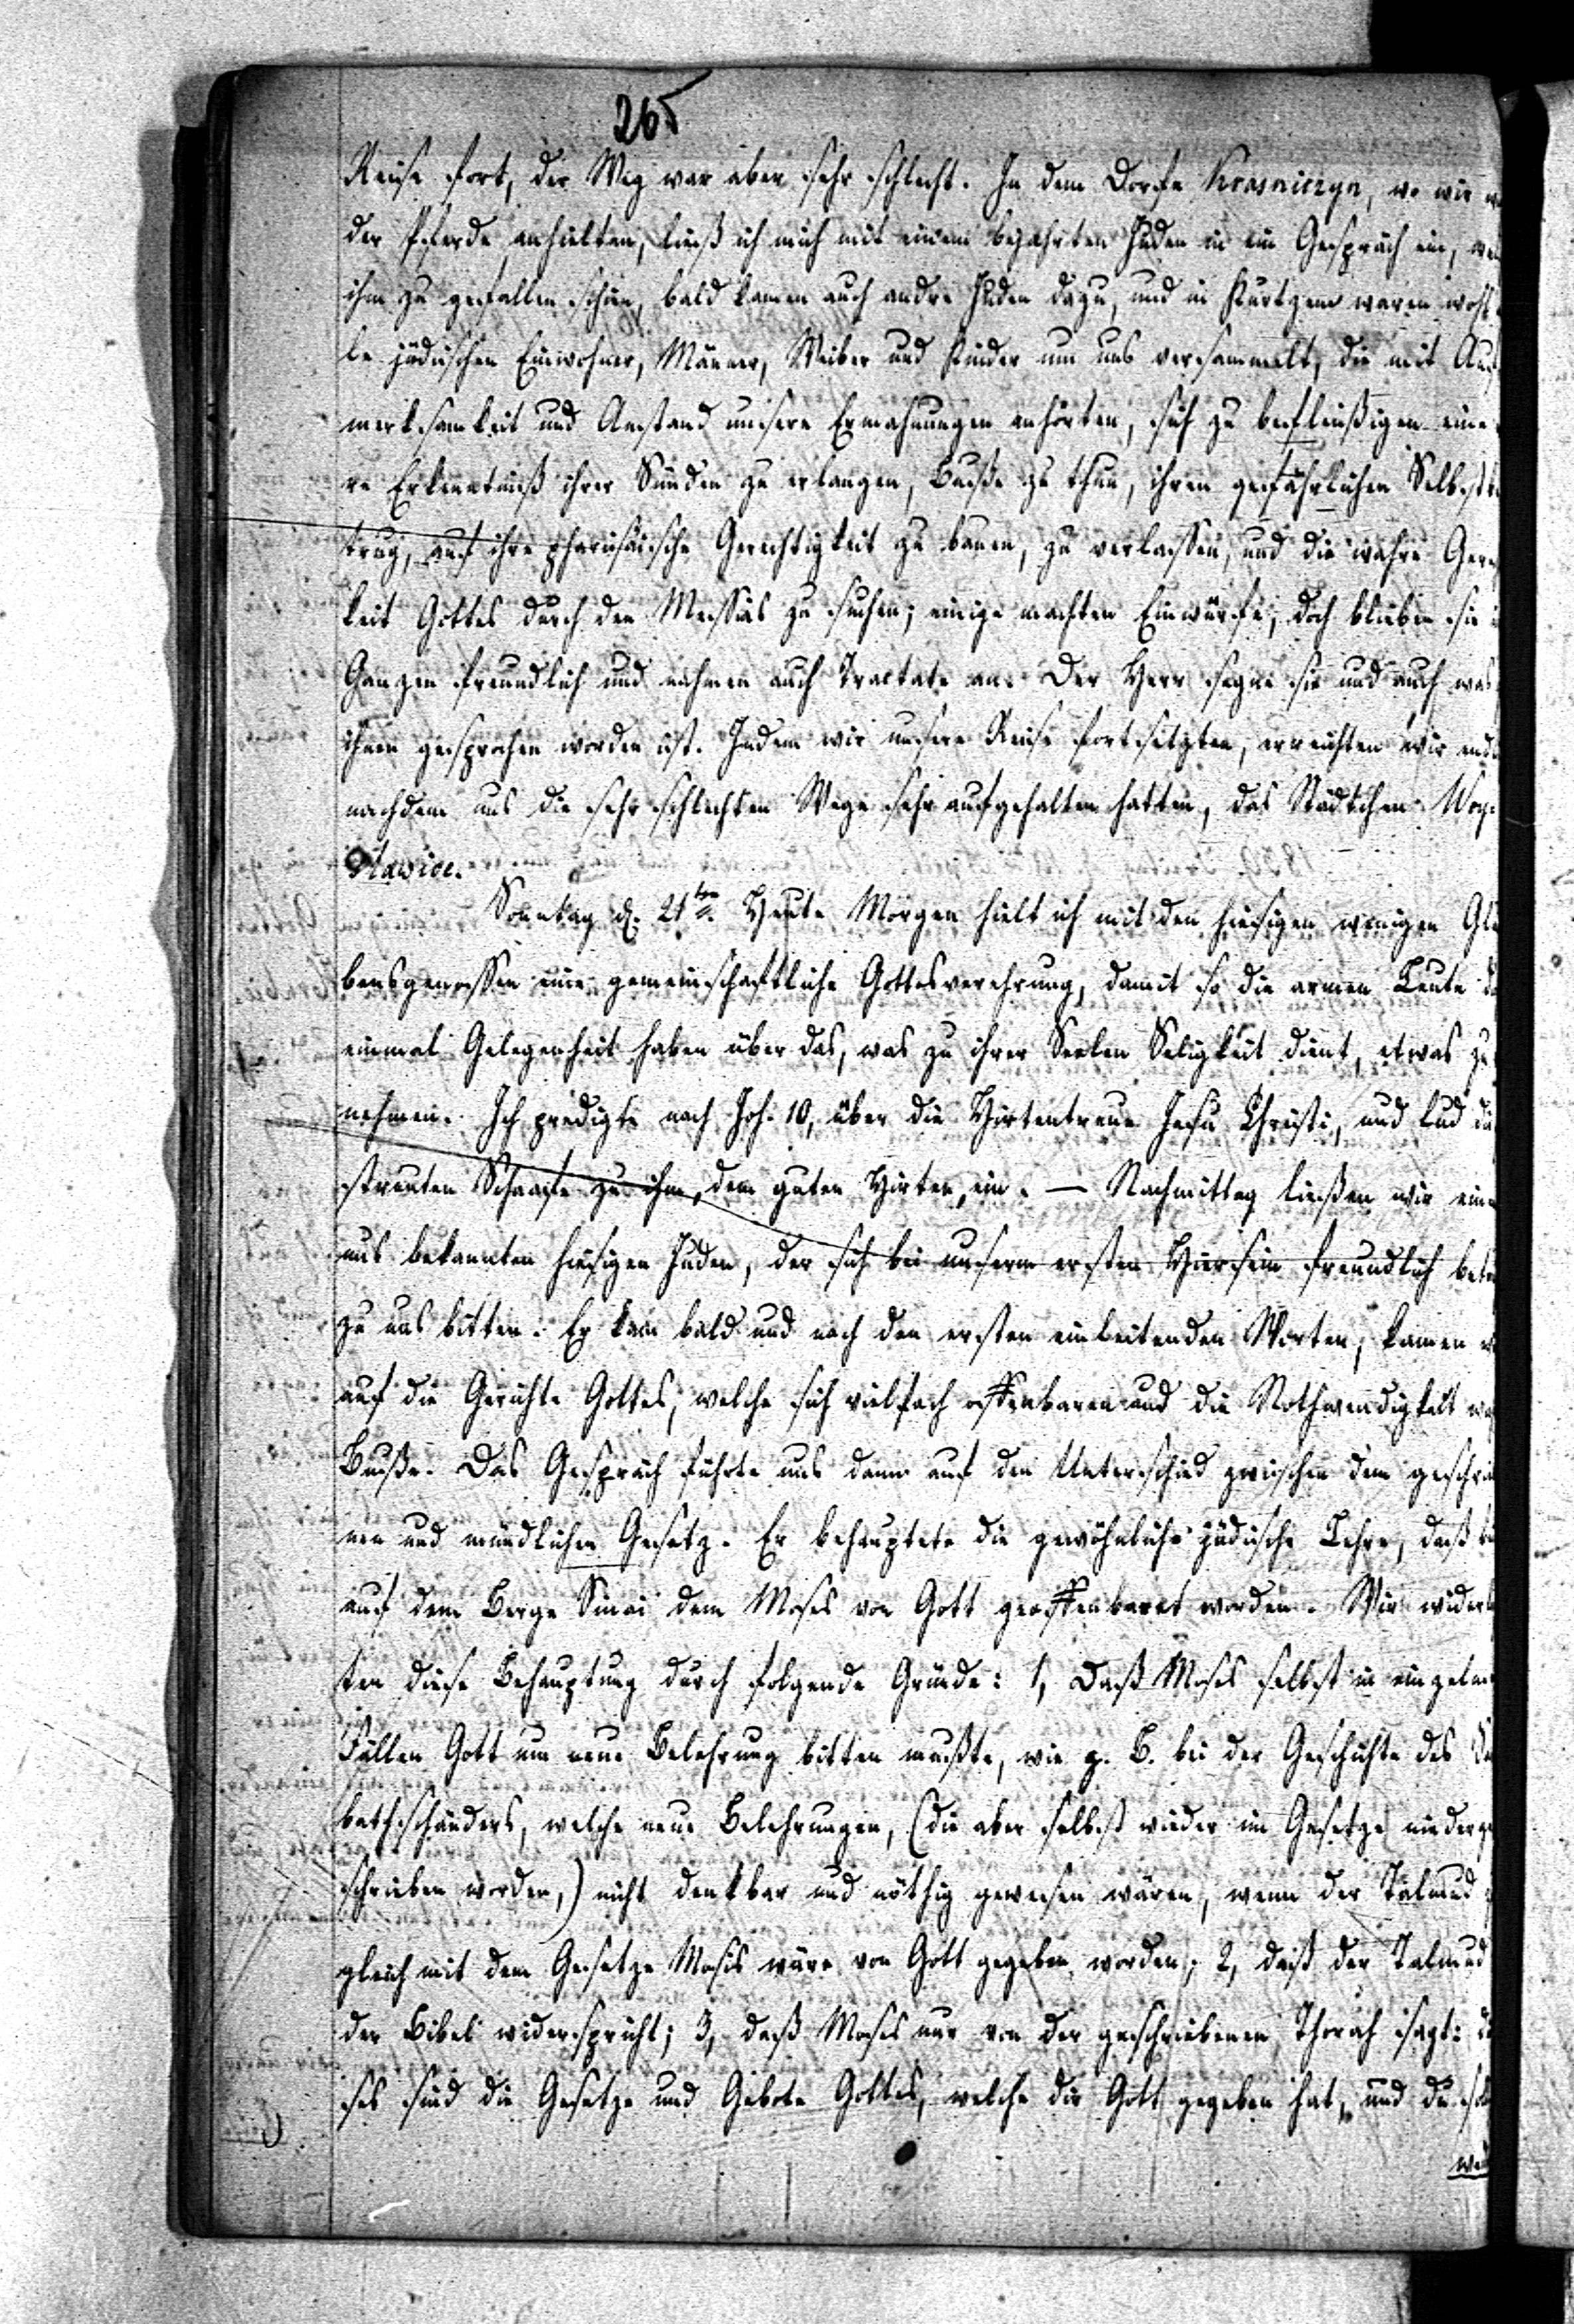 265
Reise fort, der Weg war aber sehr schlecht. In dem Dorfe Krasniczyn, wo wir
der Pferde anhielten, ließ ich mich mit einem bejahrten Juden in ein Gespräch ein,
ihm zu gefallen schien, bald kamen auch andre Juden dazu, und in Kurtzem waren wohl
le jüdischen Einwohner, Männer, Weiber und Kinder um uns versammelt, die mit Auf
merksamkeit und Anstand unsere Ermahnungen anhörten, sich zu befleißigen eine
re Erkenntniß ihrer Sünden zu erlangen, Buße zu thun, ihren gefährlichen Selbstbe
trug, auf ihre pharisäische Gerechtigkeit zu bauen, zu verlassen, und die wahre Gerech
keit Gottes durch den Messias zu suchen; einige machten Einwürfe, doch blieben sie
Ganzen freundlich und nahmen auch Tractate an. Der Herr segne sie und auch was
ihnen gesprochen worden ist. Indem wir unsere Reise fortsetzten, erreichten wir end
nachdem uns die sehr schlechten Wege sehr aufgehalten hatten, das Städtchen Woy
slawice.
Sonntag d. 21ten Heute Morgen hielt ich mit den hiesigen wenigen Glau
bensgenossen eine gemeinschaftliche Gottesverehrung, damit so die armen Leute
einmal Gelegenheit haben über das, was zu ihrer Seelen Seligkeit dient, etwas zu
nehmen. Ich predigte nach Joh. 10, über die Hirtentreue Jesu Christi, und lud die
streuten Schaafe zu ihm, dem guten Hirten, ein. — Nachmittag ließen wir einen
uns bekannten hiesigen Juden, der sich bei unserm ersten Hiersein freundlich betr
zu uns bitten. Er kam bald und nach den ersten einleitenden Worten, kamen wir
auf die Gerichte Gottes, welche sich vielfach offenbaren und die Nothwendigkeit
Buße. Das Gespräch führte uns dann auf den Unterschied zwischen dem geschrie
nen und mündlichen Gesetz. Er behauptete die gewöhnliche jüdische Lehre, daß
auf dem Berge Sinai dem Moses von Gott geoffenbaret worden. Wir widerleg
ten diese Behauptung durch folgende Gründe: 1, Daß Moses selbst in einzelnen
Fällen Gott um neue Belehrung bitten mußte, wie z. B. bei der Geschichte des Sab
bathschänders, welche neue Belehrungen, (die aber selbst wieder im Gesetze niederge
schrieben worden,) nicht denkbar und nöthig gewesen wären, wenn der Talmud
gleich mit dem Gesetze Mosis wäre von Gott gegeben worden; 2, daß der Talmud
der Bibel widerspricht; 3, daß Moses nur von der geschriebenen Thorah sagt: die
ses sind die Gesetze und Gebote Gottes, welche dir Gott gegeben hat, und du